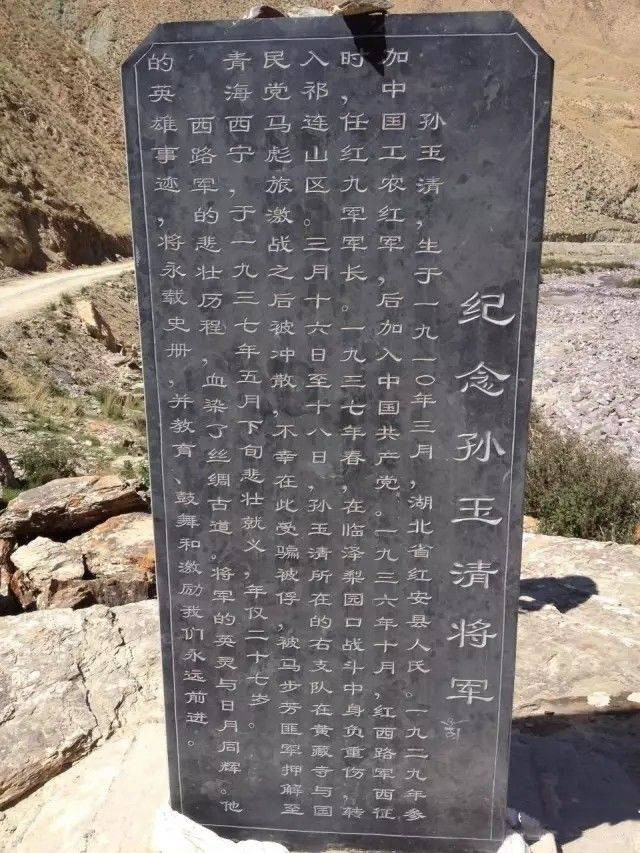 纪念孙玉清将军
孙玉清，生于一九一〇年三月，湖北省红安县人氏。一九二九年参
加中国工农红军，后加入中国共产党。一九三六年十月，红西路军西征
时，任红九军军长。一九三七年春，在临泽梨园口战斗中身负重伤，转
入祁连山区。三月十六日至十八日，孙玉清所在的右支队在黄藏寺与国
民党马彪旅激战之后被冲散，不幸在此受骗被俘，被马步芳匪军押解至
青海西宁，于一九三七年五月下旬悲壮就义，年仅二十七岁。
西路军的悲壮历程，血染了丝绸古道。将军的英灵与日月同辉。他
的英雄事迹，将永载史册，并教育、鼓舞和激励我们永远前进。